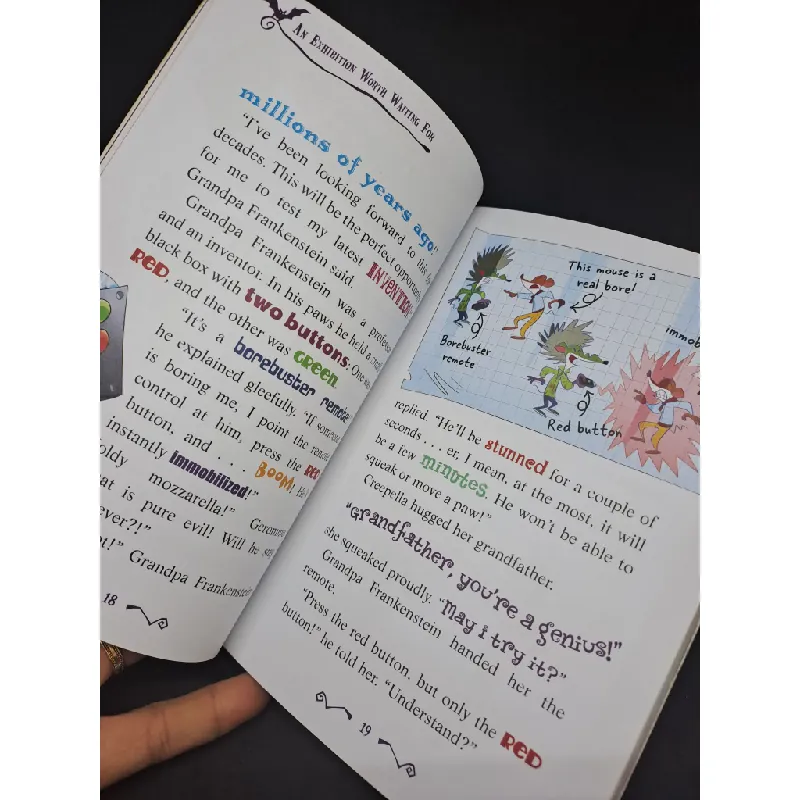 An Exhibition Worth Waiting For
millions of years ago!"
"I've been looking forward to this for
decades. This will be the perfect opportunity
for me to test my latest INVENTION
Grandpa Frankenstein said.
Grandpa Frankenstein was a
and an inventor. In his paws he held a
black box with two buttons. One was
RED, and the other was GREEN.
"It's a borebuster remote
he explained gleefully. "If someone
is boring me, I point the remote
control at him, press the RED
button, and . . . BOOM! He
instantly immobilized!"
mozzarella!"
at is pure evil! Will he
ever?!"
Grandpa Frankenstein
18
This mouse is a
real bore!
Borebuster
remote
Red button
replied. "He'll be stunned for a couple of
seconds . . . er, I mean, at the most, it will
be a few minutes. He won't be able to
squeak or move a paw!"
Creepella hugged her grandfather.
"Grandfather, you're a genius!"
she squeaked proudly. "May i try it?"
Grandpa Frankenstein handed her the
remote.
"Press the red button, but only the RED
button!" he told her. "Understand?"
19